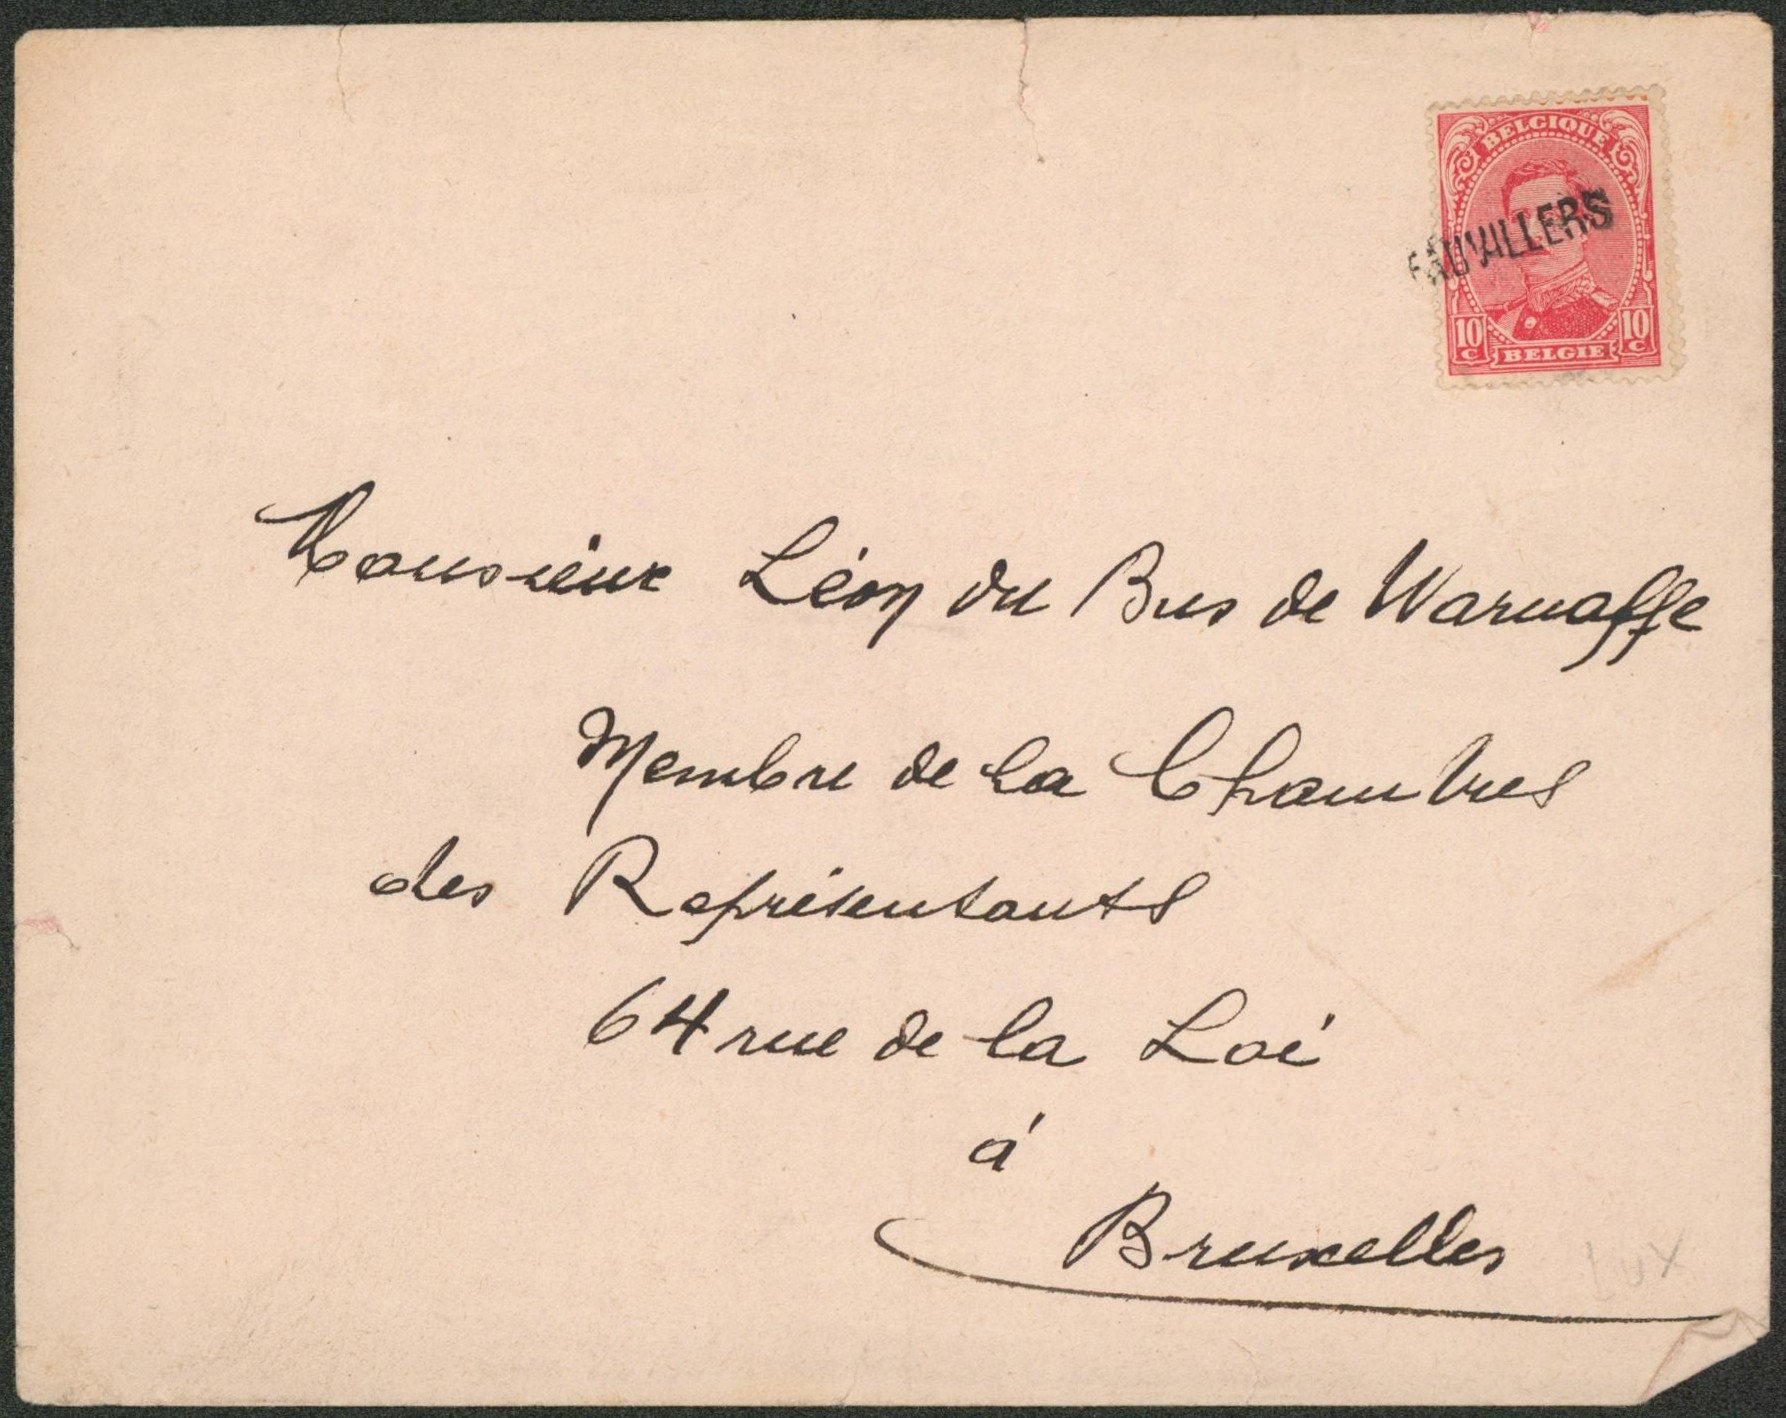 BELGIQUE
FAUVILLERS
10 C 10 C
BELGIE
Monsieur Léon du Bus de Warnaffe
Membre de la Chambres
des Représentants
64 rue de la Loi
à
Bruxelles
Lux